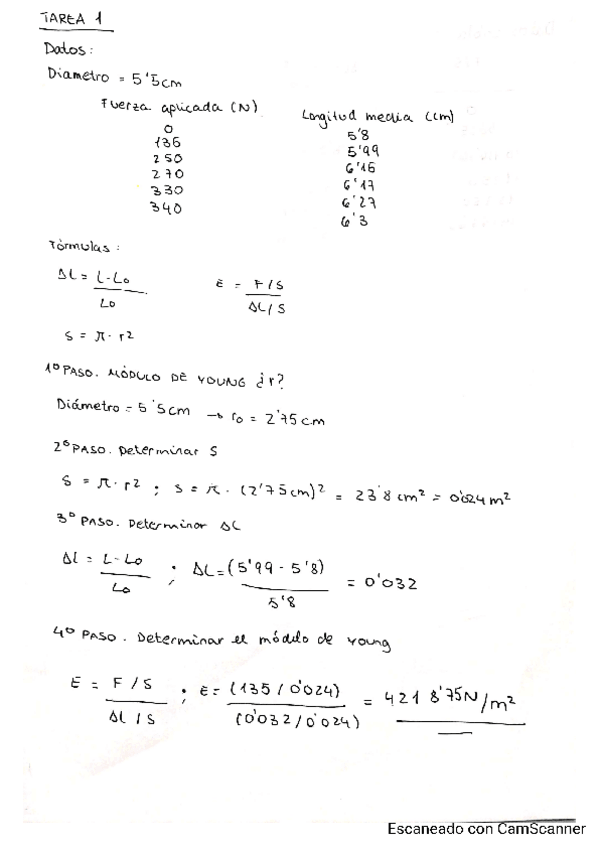 TAREA 1
Datos:
Diametro = 5'5cm
Fuerza aplicada (N) Longitud media (cm)
0 5'8
136 5'99
250 6'16
270 6'17
330 6'27
340 6'3
Fórmulas:
Δl = L-Lo / Lo E = F/S / Δl/S
S = π · r²
1º PASO. MÓDULO DE YOUNG ¿r?
Diámetro = 5'5cm → ro = 2'75cm
2º PASO. Determinar S
S = π · r² ; S = π · (2'75cm)² = 23'8 cm² = 0'024 m²
3º PASO. Determinar Δl
Δl = L-Lo / Lo ; Δl = (5'99 - 5'8) / 5'8 = 0'032
4º PASO. Determinar el módulo de young
E = F/S / Δl/S ; E = (135/0'024) / (0'032/0'024) = 4218'75N/m²
Escaneado con CamScanner